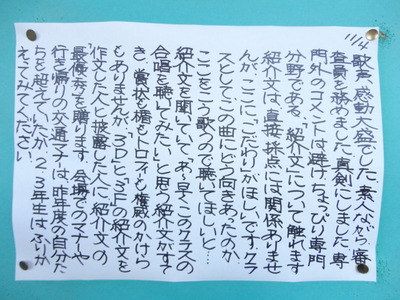 11/4
歌声、感動大盛でした。素人ながら、審
査員を務めました。真剣にしました。専
門外のコメントは避け、ちょっぴり専門
分野である、「紹介文」について触れます
紹介文は、直接、採点には関係ありませ
んが、ここに、こだわりがほしいです。クラ
スとしてこの曲にどう向きあったのか
ここをこう歌うので聴いてほしいと…
紹介文を聞いていて、あ!早くこのクラスの
合唱を聴いてみたい!と思う紹介文がすて
き。賞状も楯もトロフィも権威のかけら
もありませんが、「3D」と「3F」の紹介文を
作文した人と披露した人に、紹介文の
最優秀を贈ります。会場でのマナーや
行き帰りの交通マナーは、昨年度の自分た
ちを超えていたか。2・3年生は、ふりか
えってみてください。